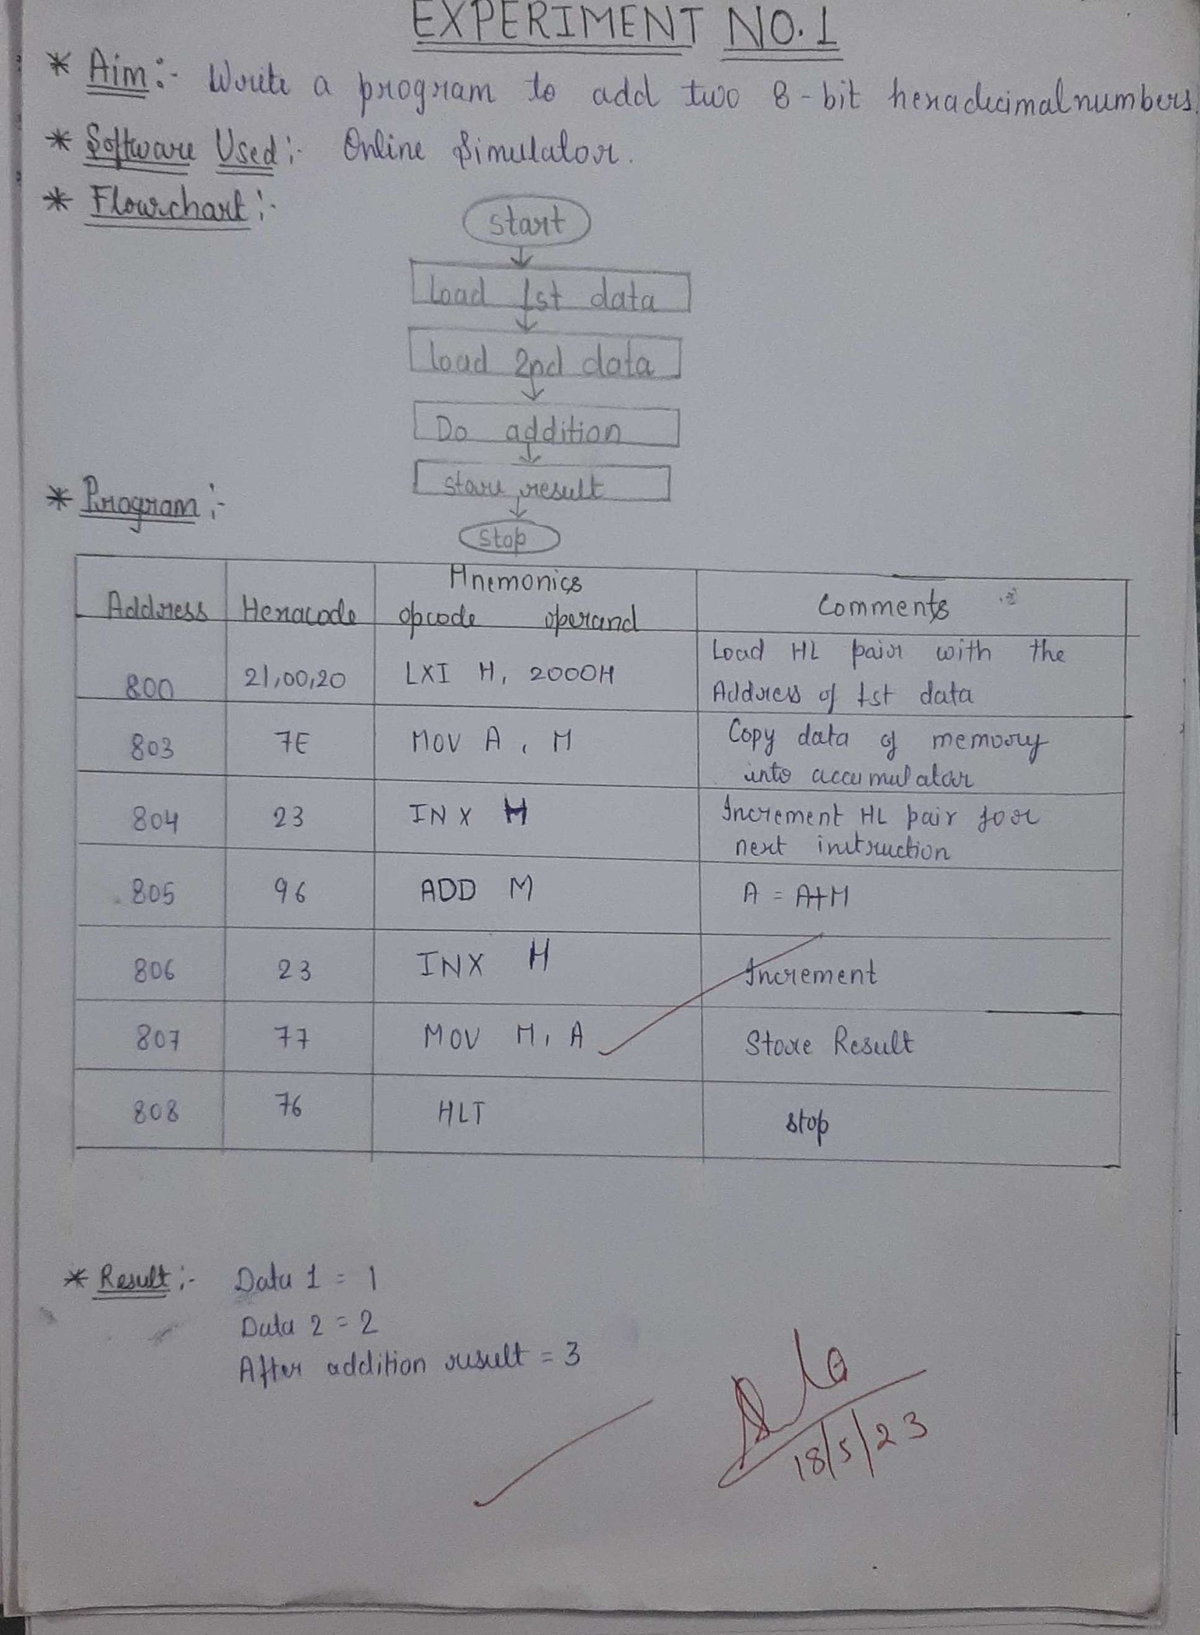 EXPERIMENT NO. 1
* Aim:- Write a program to add two 8-bit hexadecimal numbers.
* Software Used:- Online Simulator.
* Flowchart:-
Start
Load 1st data
Load 2nd data
Do addition
store result
Stop
* Program:-
Address Hexacode Mnemonics Comments
opcode operand
800 21,00,20 LXI H, 2000H Load HL pair with the
Address of 1st data
803 7E MOV A, M Copy data of memory
into accumulator
804 23 INX H Increment HL pair for
next instruction
805 96 ADD M A = A+M
806 23 INX H Increment
807 77 MOV M, A Store Result
808 76 HLT stop
* Result:- Data 1 = 1
Data 2 = 2
After addition result = 3
18/5/23